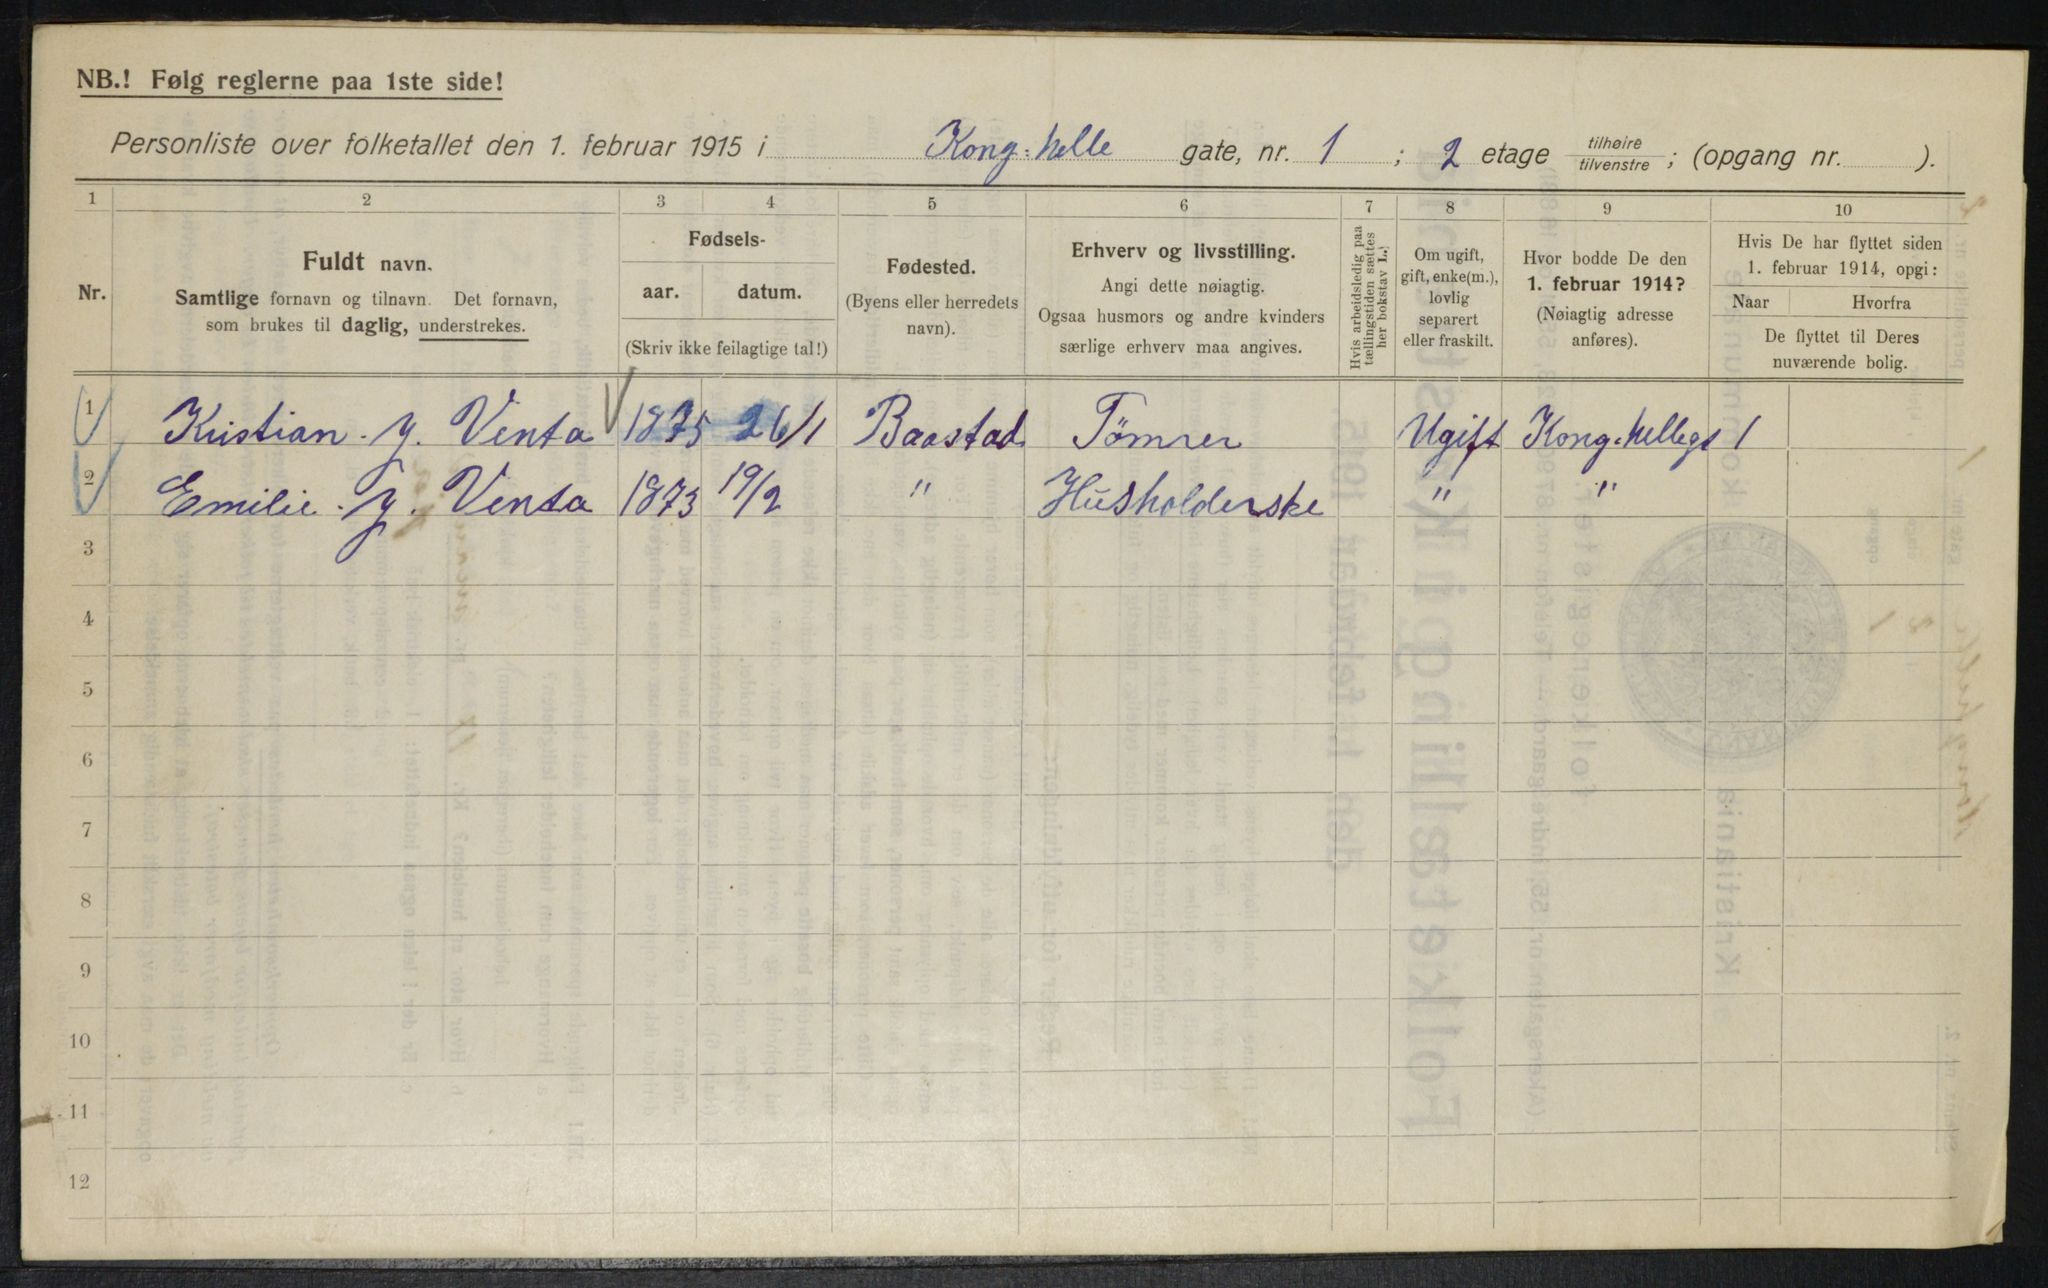 NB.! Følg reglerne paa 1ste side!
Personliste over folketallet den 1. februar 1915 i Kong-helle gate, nr. 1 ; 2 etage tilhøire tilvenstre ; (opgang nr. ).
1 2 3 4 5 6 7 8 9 10
Nr.
Fuldt navn.
Samtlige fornavn og tilnavn. Det fornavn,
som brukes til daglig, understrekes.
Fødsels-
aar. datum.
(Skriv ikke feilagtige tal!)
Fødested.
(Byens eller herredets
navn).
Erhverv og livsstilling.
Angi dette nøiagtig.
Ogsaa husmors og andre kvinders
særlige erhverv maa angives.
Hvis arbeidsledig paa
tællingstiden sættes
her bokstav L.
Om ugift,
gift, enke(m.),
lovlig
separert
eller fraskilt.
Hvor bodde De den
1. februar 1914?
(Nøiagtig adresse
anføres).
Hvis De har flyttet siden
1. februar 1914, opgi:
Naar Hvorfra
De flyttet til Deres
nuværende bolig.
1 Kristian . J. Venta 1875 26/1 Baastad Tömrer Ugift Kong-hellegt 1
2 Emilie . J. Venta 1873 19/2 " Husholderske " "
3
4
5
6
7
8
9
10
11
12